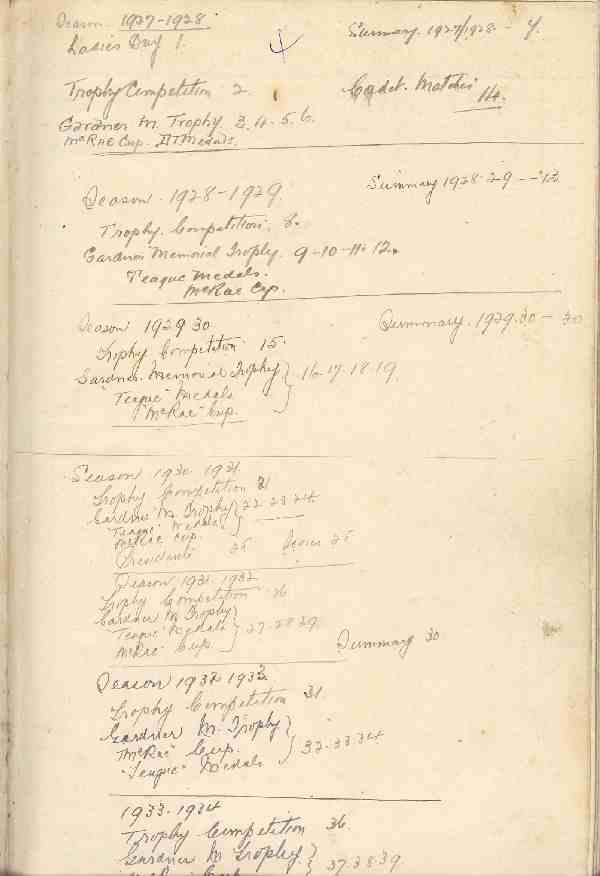 Season. 1927-1928. Summary. 1927/1928. - 7.
Ladies Day 1.
Trophy Competition 2. Cadet. Matches
14.
Gardner M. Trophy 3. 4. 5. 6.
McRae Cup. Medals.
Season. 1928-1929. Summary 1928-29 - 13
Trophy. Competition. 8.
Gardner Memorial Trophy. 9-10-11-12.
Teague Medals.
McRae Cup.
Season 1929 30 Summary. 1929.30 - 30
Trophy Competition 15.
Gardner Memorial Trophy } 16-17-18-19.
"Teague" Medals
"McRae" Cup.
Season 1930 1931.
Trophy Competition 21
Gardner M. Trophy } 22-23-24.
"Teague" Medals
McRae Cup.
Presidents 25 25
Season 1931-1932
Trophy Competition 26
Gardner M Trophy
"Teague" Medals } 27-28-29.
"McRae" Cup. Summary 30
Season 1932 1933.
Trophy Competition 31.
Gardner M. Trophy
"McRae" Cup. } 32-33-34
"Teague" Medals
1933-1934
Trophy Competition 36.
Gardner M Trophy } 37.38.39.